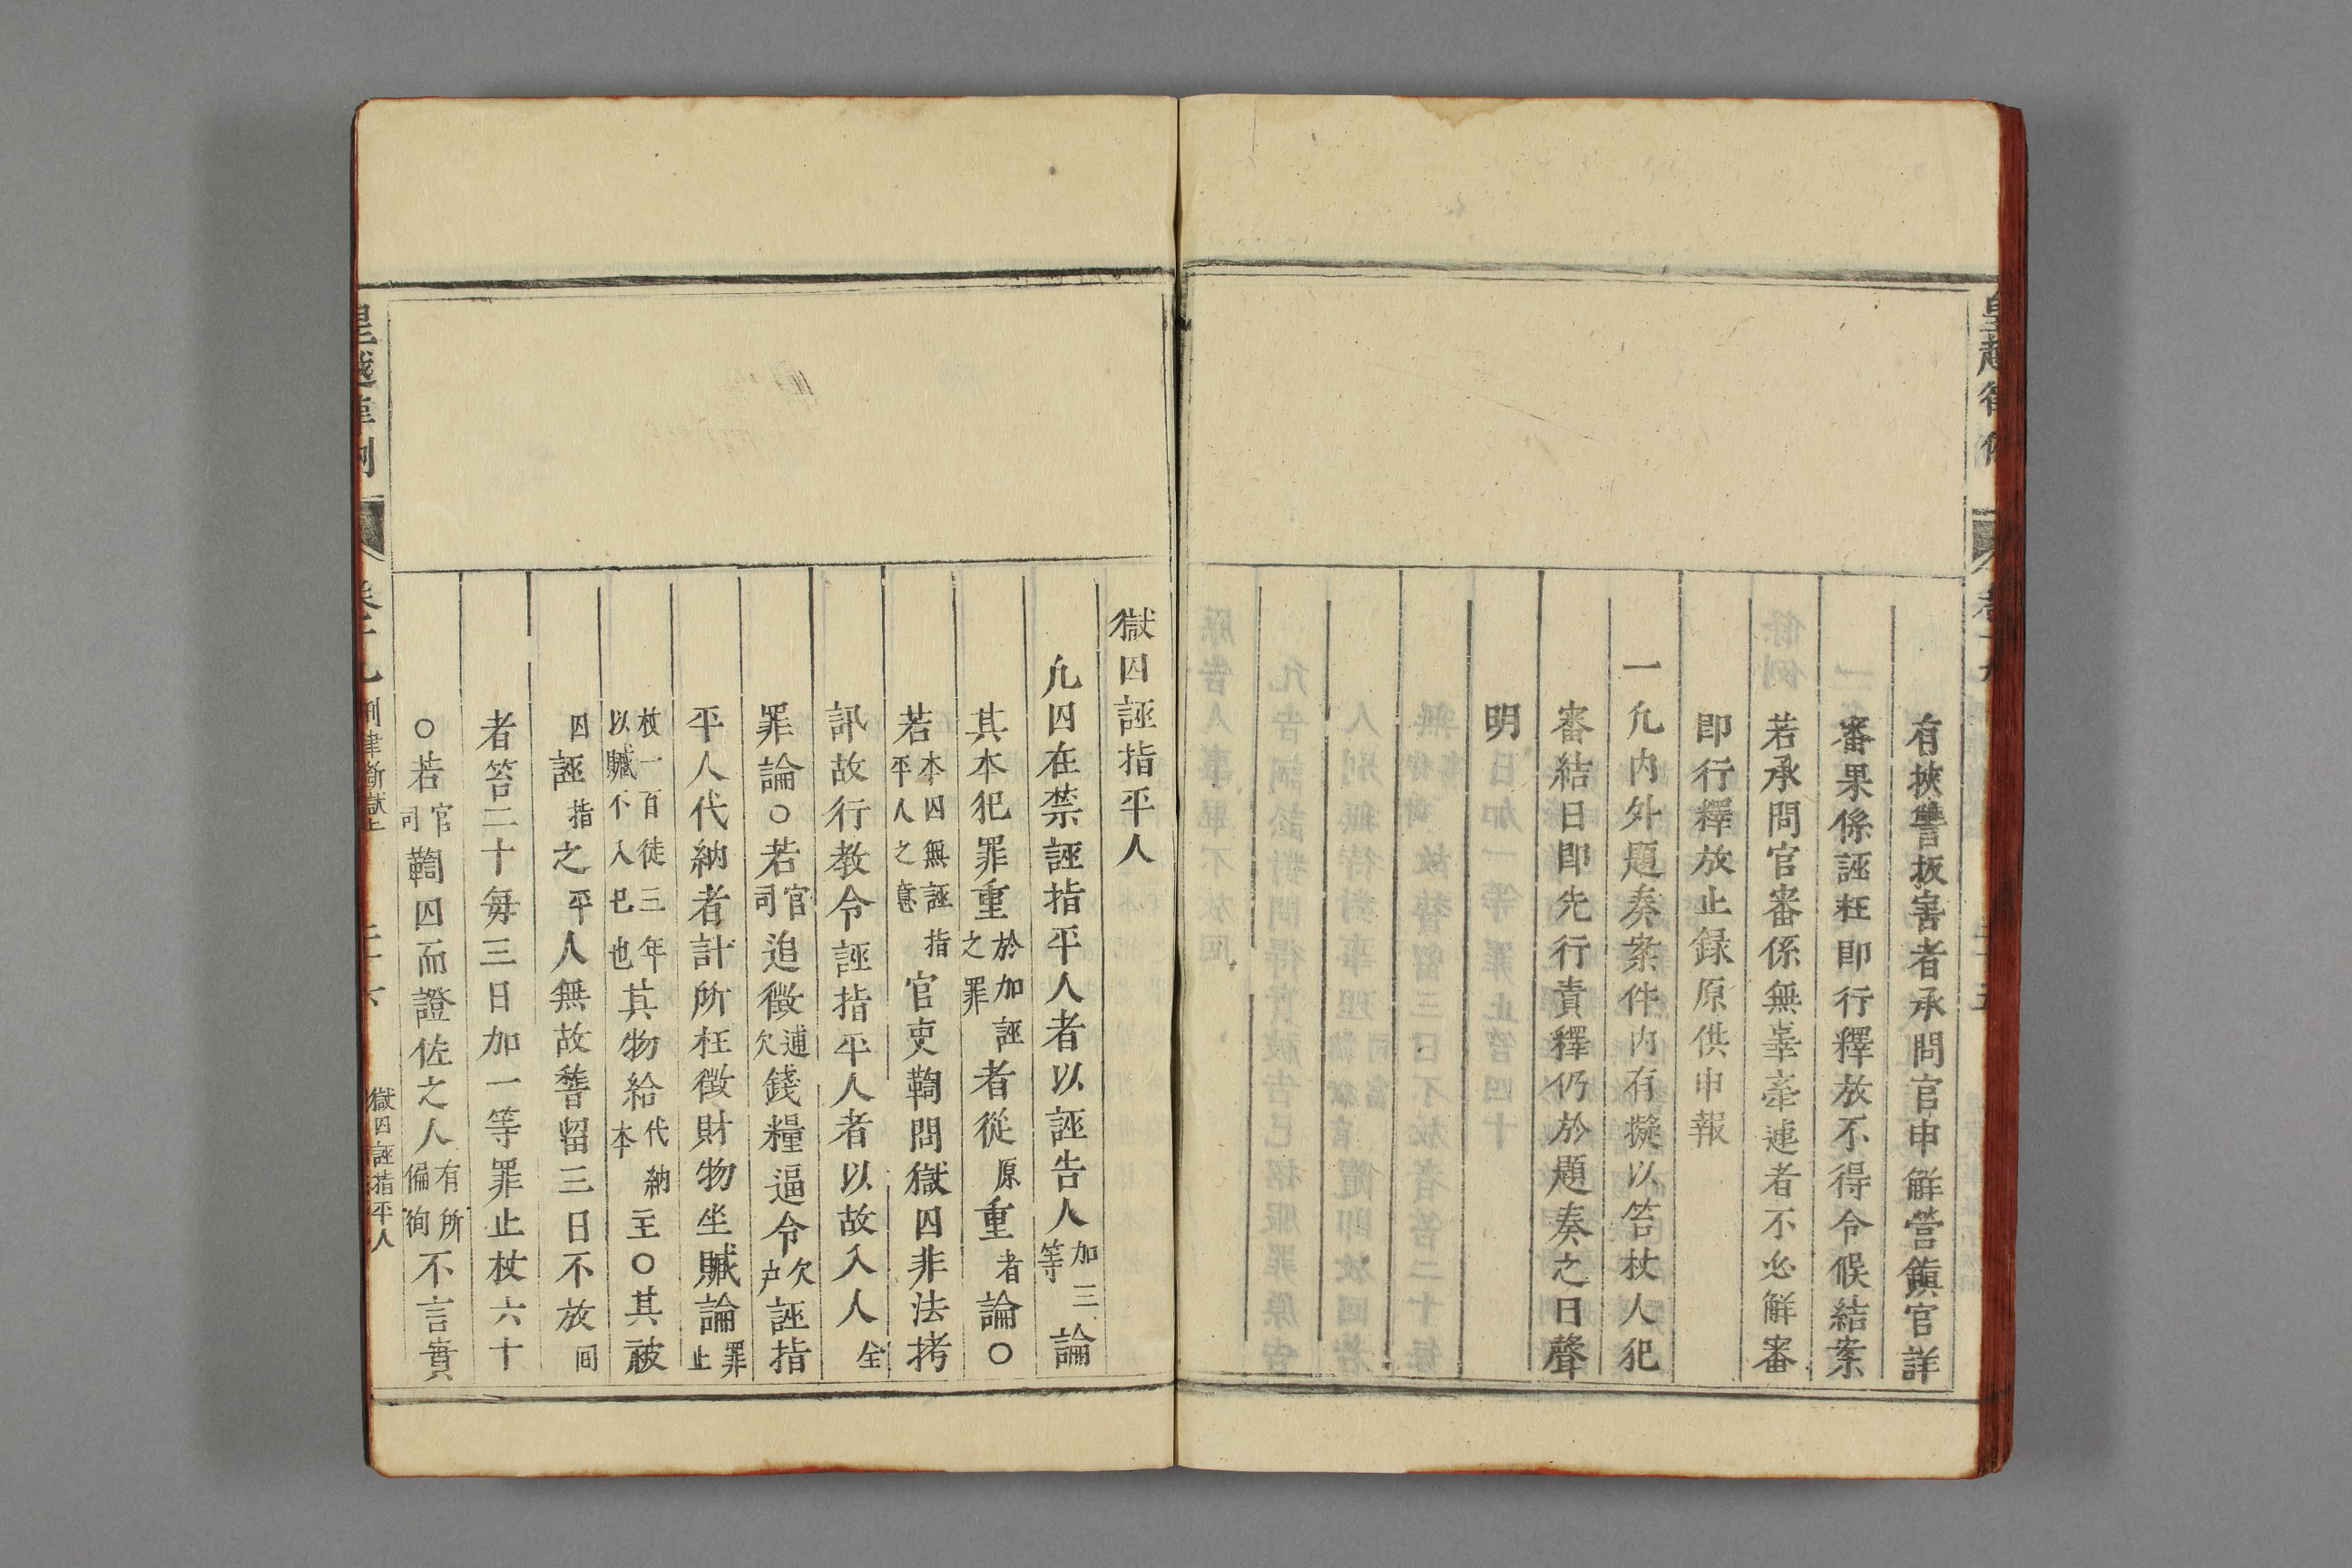 有挾讐扳害者承問官申解營鎮官詳
審果係誣枉即行釋放不得令候結案
若承問官審係無辜牽連者不必解審
即行釋放止録原供申報
一凢内外題奏案件内有擬以笞杖人犯
審結日即先行責釋仍於題奏之日聲
明
獄囚誣指平人
凢囚在禁誣指平人者以誣告人加三等論
其本犯罪重於加誣之罪者從原重者論○
若本囚無誣指平人之意官吏鞫問獄囚非法拷
訊故行教令誣指平人者以故入人全
罪論○若官司追徵逋欠錢糧逼令欠户誣指
平人代納者計所枉徵財物坐贓論罪止
杖一百徒三年以贓不入已也其物給代納本主○其被
囚誣指之平人無故稽留三日不放回
者笞二十每三日加一等罪止杖六十
○若官司鞫囚而證佐之人有所偏徇不言實
獄囚誣指平人